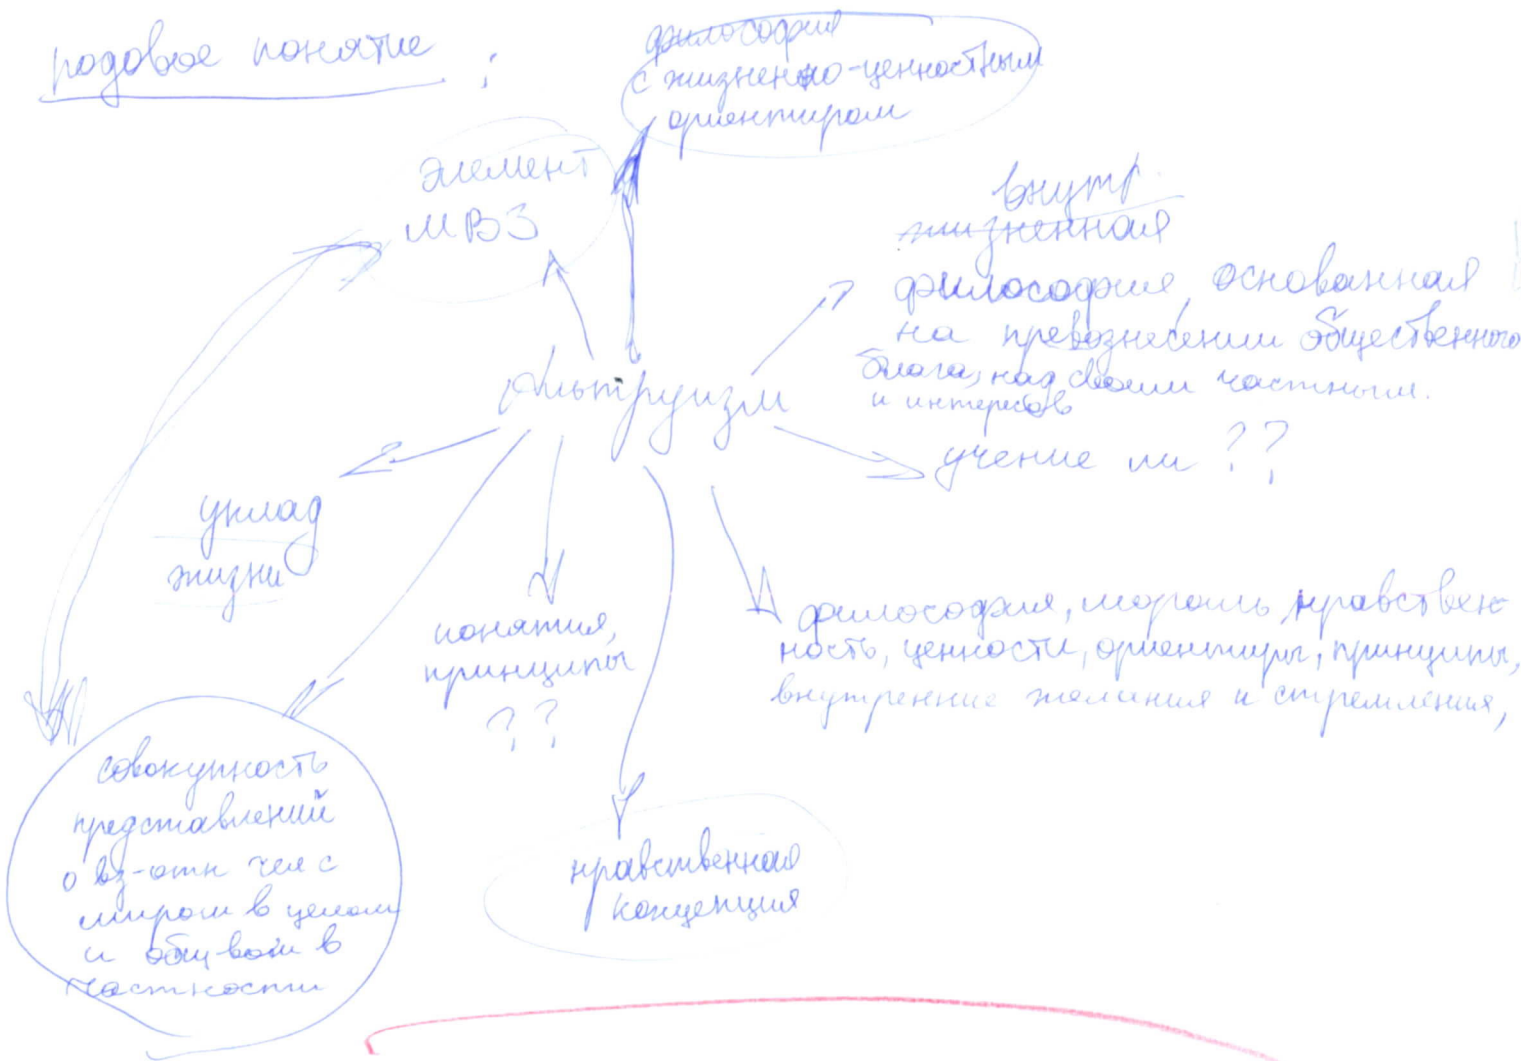 родовое понятие :
философия
с жизненно-ценностным
ориентиром
элемент
МВЗ
внутр.
жизненная
философия, основанная
на превознесении общественного
блага, над своим частным.
и интересов
альтруизм
учение ли ??
уклад
жизни
понятия,
принципы
??
философия, мораль, нравствен-
ность, ценности, ориентиры, принципы,
внутренние желания и стремления,
совокупность
представлений
о вз-отн чел с
миром в целом
и общ-вом в
частности
нравственная
концепция